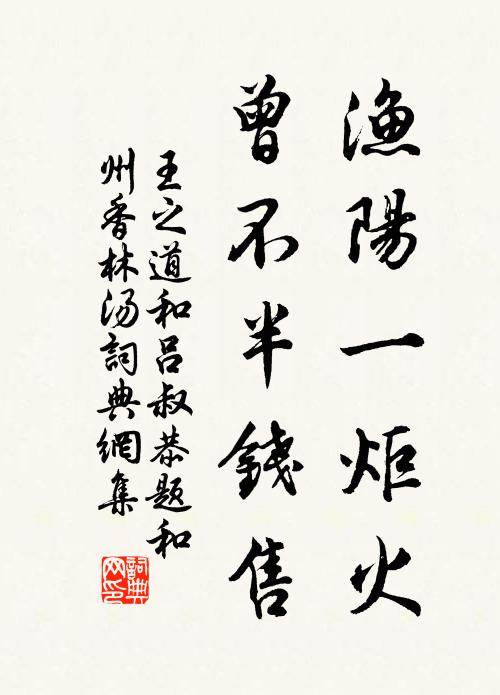 漁陽一炬火
曾不半錢售
王之道和呂叔恭题和
州香林汤詞典網集
詞典
网印